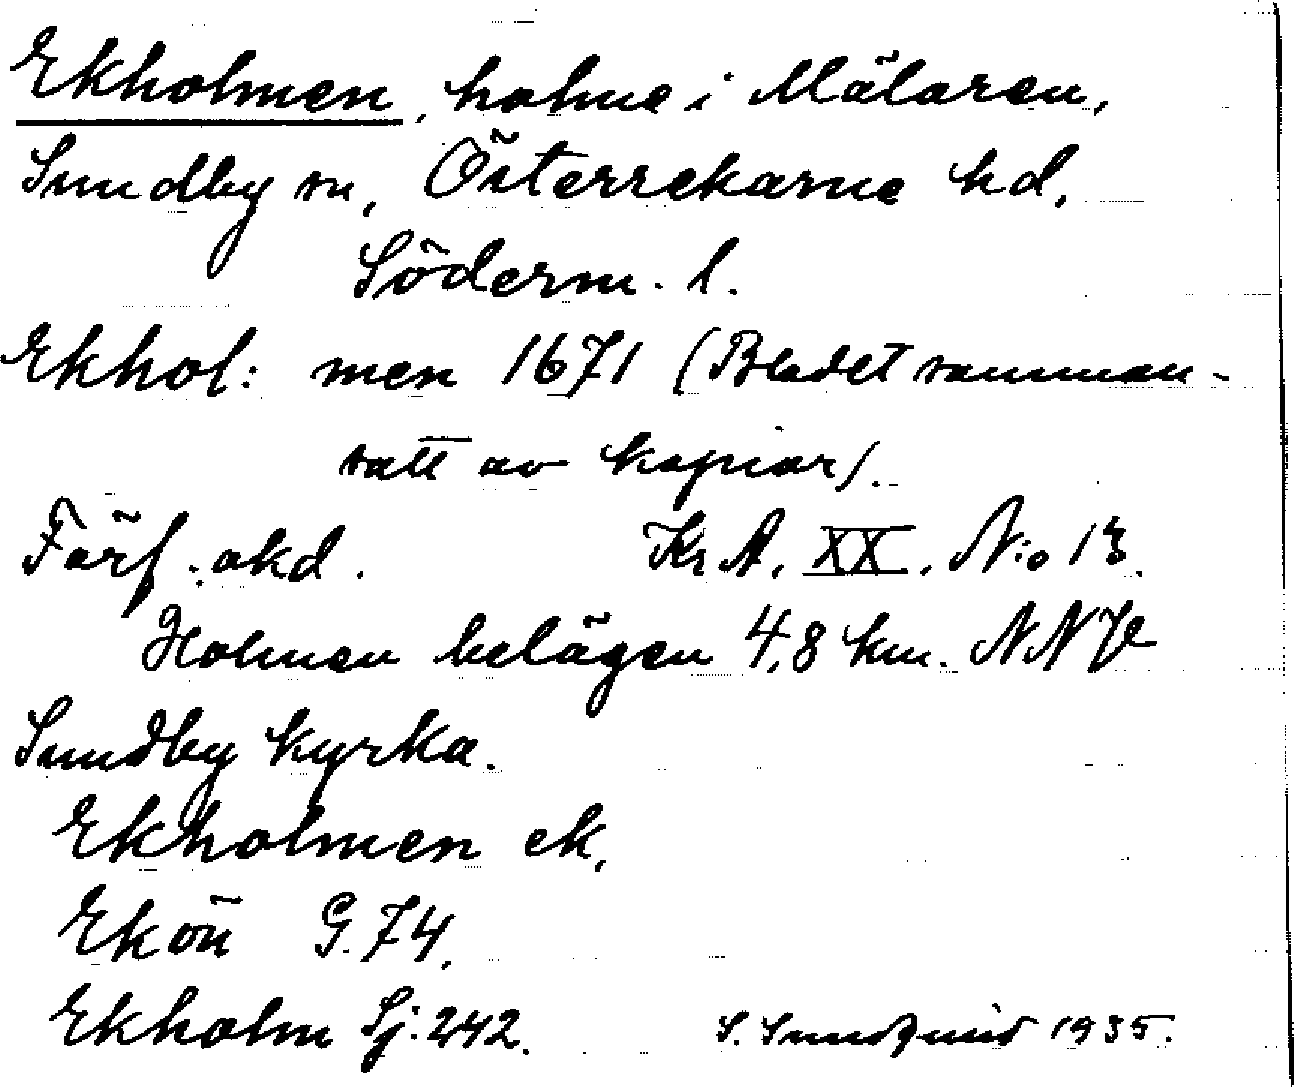 Ekholmen, holme i Mälaren,
Sundby sn, Österrekarne hd,
Söderm. l.
Ekhol: men 1671 (Bladet samman-
satt av kopior).
Förf. okd. Kr A. XX. N:o 13.
Holmen belägen 4,8 km. NNV
Sundby kyrka.
Ekholmen ek.
Ekön G. 74.
Ekholm Sj. 242. S. Sundqvist 1935.